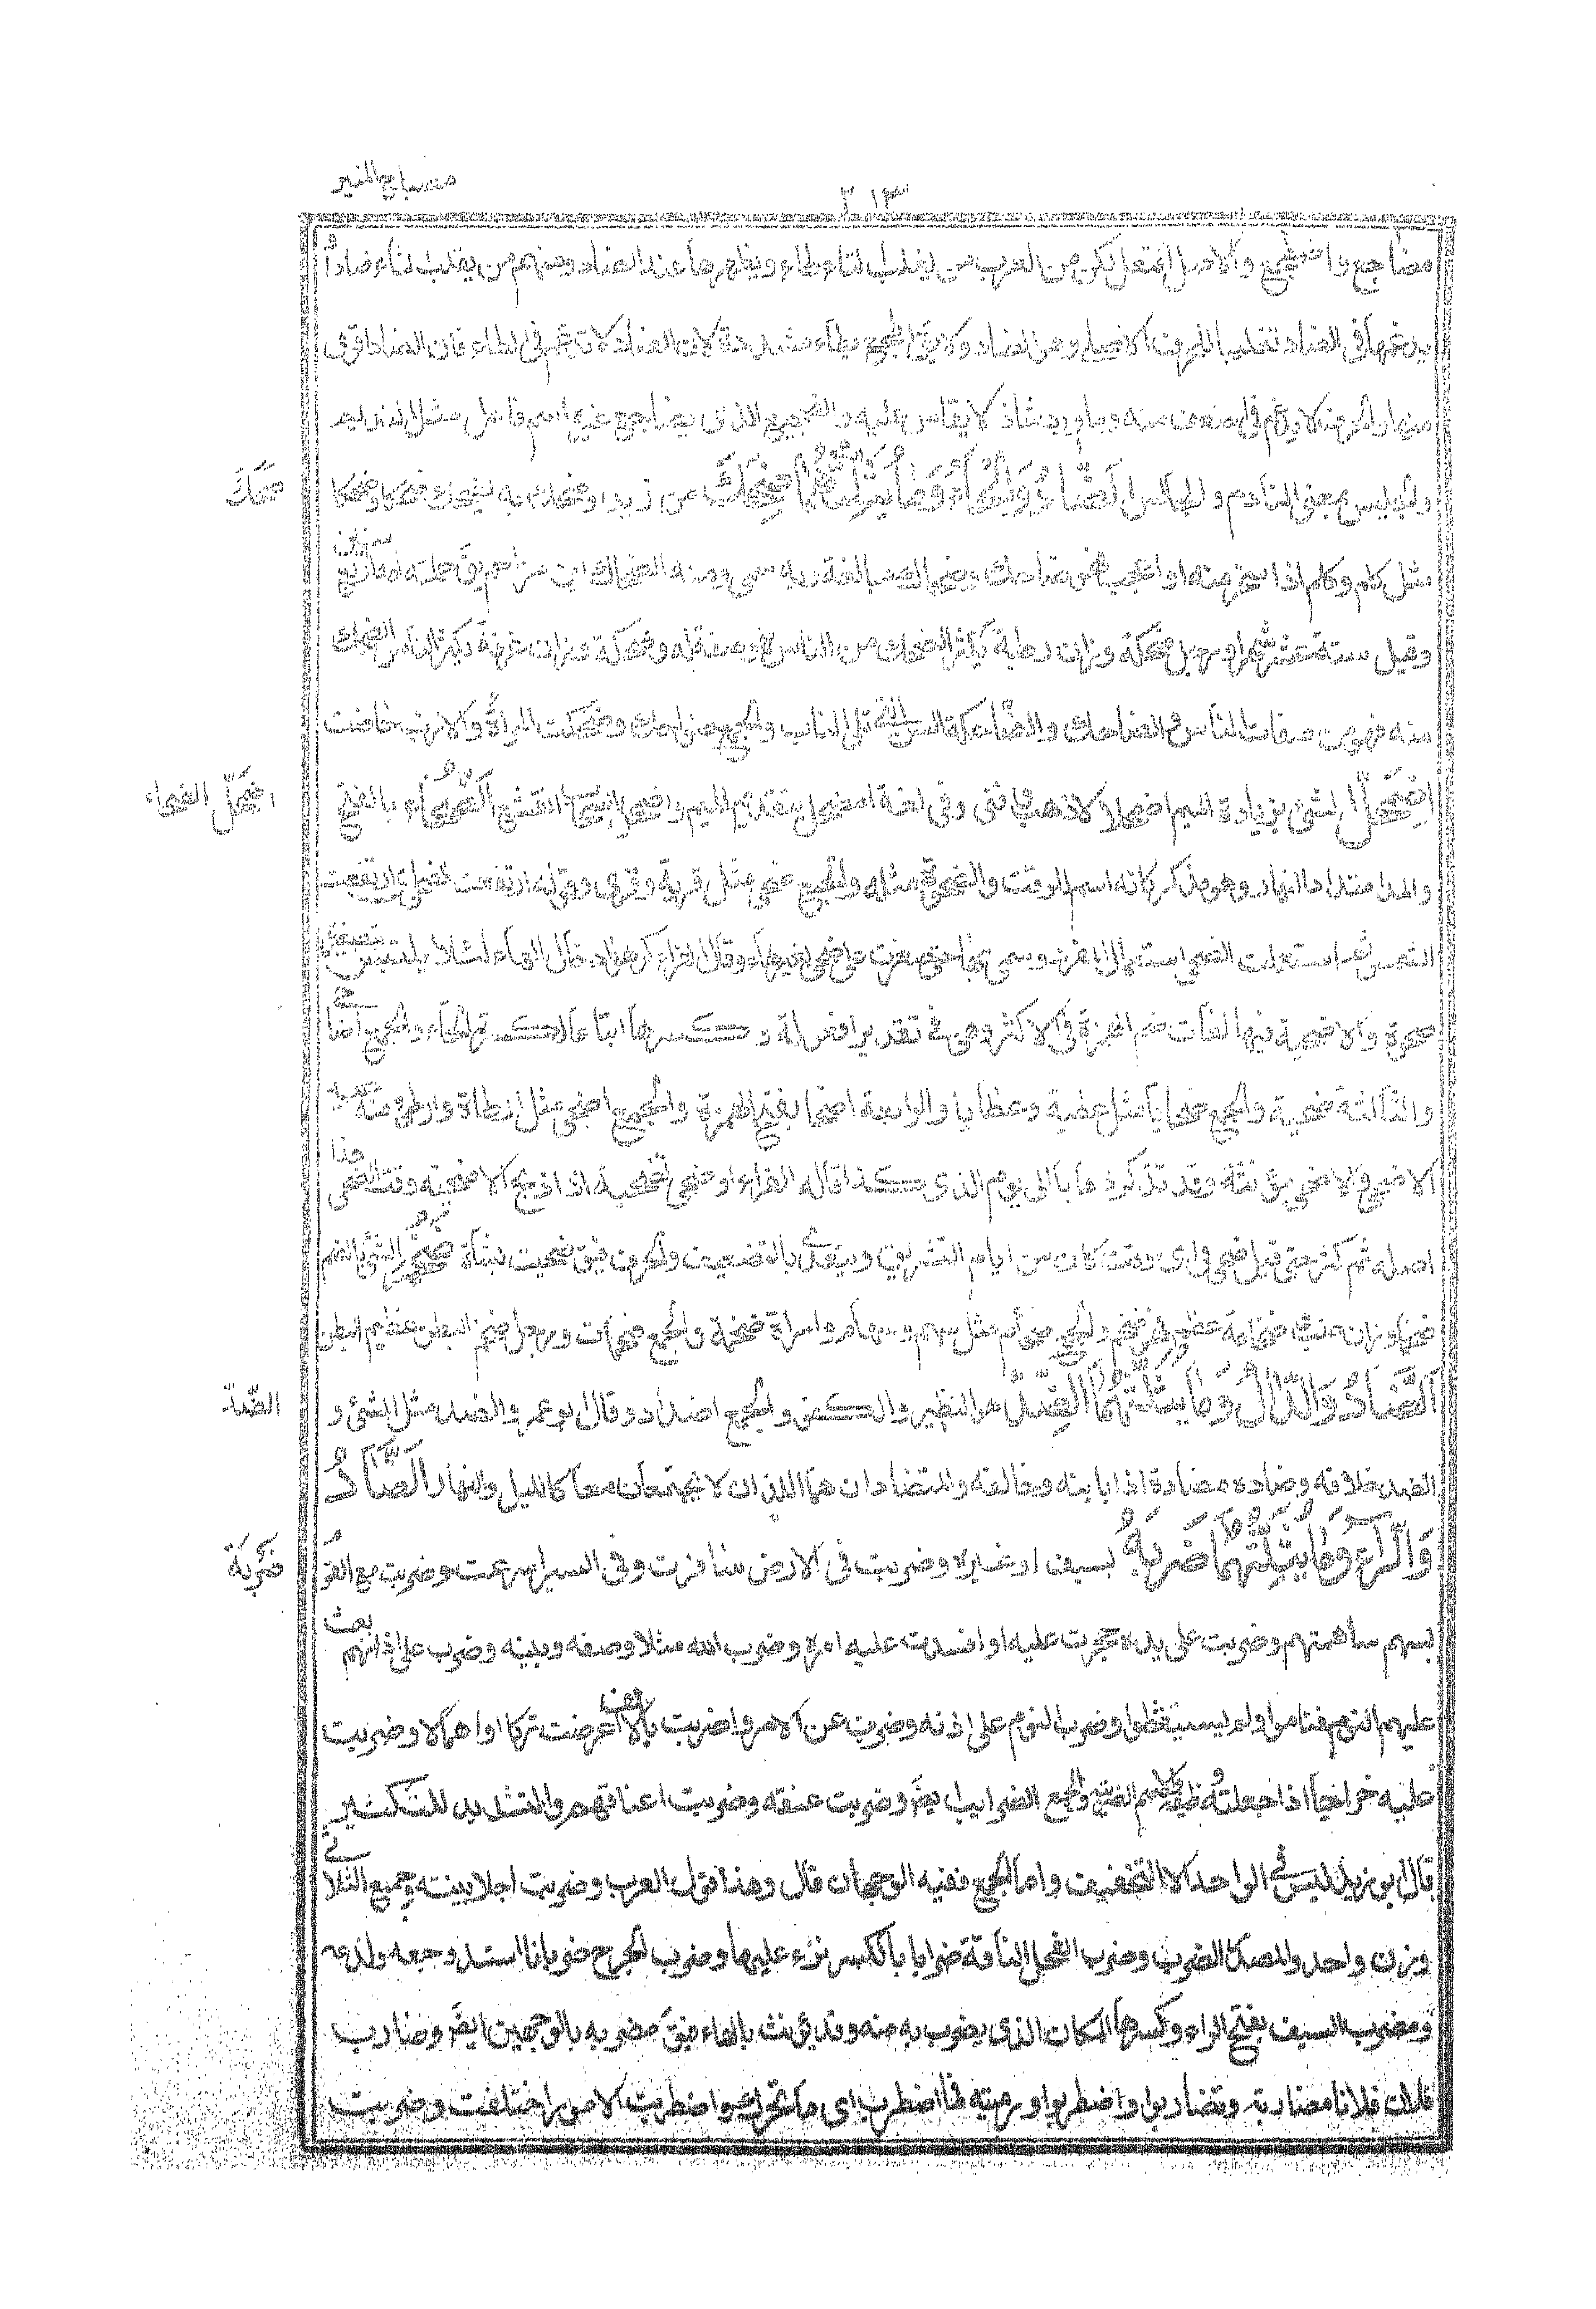 مصباح المنير
٣١٣
مضاجع واضطجع والاصل افتعل لكن من العرب من يقلب التاء طاء ويظهرها عند الضاد ومنهم من يقلب التاء ضادا
يدغمها فى الضاد تغليبا للحرف الاصلى وهو الضاد ولا يقال اطجع بطاء مشددة لان الضاد لا تدغم فى الطاء فان الضاد اقوى
منها والحرف لا يدغم فى اضعف منه وما ورد شاذ لا يقاس عليه والضجيع الذى يضاجع غيره اسم فاعل مثل النديم
والجليس بمعنى المنادم والمجالس الضَّادُ وَالْحَاءُ وَمَا يَثْلُثُهُمَا ضَحِكَ من زيد وضحك به يضحك ضحكا وضحكا
ضَحِكَ
مثل كلم وكلم اذا سخر منه او عجب فهو ضاحك وضحاك مبالغة وبه سمى ومنه الضحاك ابن مزاحم يق حملته امه اربع سنين
وقيل ستة عشر شهرا ورجل ضحكة وزان رطبة يكثر الضحك من الناس فهو صفة له وضحكة وزان غرفة يكثر الناس الضحك
منه فهو من صفات الناس والضاحك والضاحكة السن التى تلى الناب والجمع ضواحك وضحكت المراة والارنب حاضت
اضْمَحَلَّ الشئ بزيادة الميم اضمحلالا ذهب وفنى وفى لغة امضحل بتقديم الميم واضمحل السحاب انقشع الضَّحَاءُ بالفتح
اضمحلّ الضحاء
والمد امتداد النهار وهو مذكر كانه اسم للوقت والضحوة مثله والجمع ضحى مثل قرية وقرى وقوله ارتفعت الضحى اى ارتفعت
الشمس ثم استعملت الضحى استعمال المفرد وسمى بها حتى صغرت على ضحى بغير هاء وقال الفراء كرهوا ادخال الهاء لئلا يلتبس بتصغير
ضحوة والاضحية فيها لغات ضم الهمزة فى الاكثر وهى فى تقدير افعولة وكسرها اتباعا لكسرة الحاء والجمع اضاحى
والثالثة ضحية والجمع ضحايا مثل عطية وعطايا والرابعة اضحاة بفتح الهمزة والجمع اضحى مثل ارطاة وارطى ومنه عيد
الاضحى والاضحى مؤنثة وقد تذكر ذهابا الى يوم الذى كذا قاله الفراء وضحى تضحية اذا ذبح الاضحية وقت الضحى هذا
اصله ثم كثر حتى قيل ضحى فى اى وقت كان من ايام التشريق ويتعدى بالتضعيف والحرف فيق ضحيت بشاة ضَخُمَ الشئ بالضم
ضخما وزان عنب وضخامة عظم فهو ضخم والجمع ضخام مثل سهم وسهام وامراة ضخمة والجمع ضخمات ورجل ضخم البطن عظيم البطن
الضَّادُ وَالدَّالُ وَمَا يَثْلُثُهُمَا الضِّدُّ هو النظير والكفو والجمع اضداد وقال ابو عمرو والضد مثل الشئ و
الضّد
الضد خلافه وضاده مضادة اذا باينه وخالفه والمتضادان هما اللذان لا يجتمعان معا كالليل والنهار الضَّادُ
وَالرَّاءُ وَمَا يَثْلُثُهُمَا ضَرَبَهُ بسيف او غيره وضربت فى الارض سافرت وفى السير اسرعت وضربت مع القو
ضَرَبَهُ
بسهم ساهمتهم وضربت على يده حجرت عليه او افسدت عليه امره وضرب الله مثلا وصفه وبينه وضرب على اذانهم بعث
عليهم النوم فناموا ولم يستيقظوا وضرب النوم على اذنه وضربت عن الامر واضربت بالالف اعرضت تركا او اهمالا وضربت
عليه خراجا اذا جعلته وظيفة والاسم الضريبة والجمع الضرايب ايضا وضربت عنقه وضربت اعناقهم والتشديد للتكثير
قال ابو زيد ليس فى الواحد الا التخفيف واما الجمع ففيه الوجهان قال وهذا قول العرب وضربت اجلا بينته وجميع الثلاثى
وزن واحد والمصدر الضرب وضرب الفحل الناقة ضرابا بالكسر نزء عليها وضرب الجرح ضربانا اشتد وجعه ولذعه
ومضرب السيف بفتح الراء وكسرها المكان الذى يضرب به منه وقد يؤنث بالهاء فيق مضربه بالوجهين ايضا وضارب
فلان فلانا مضاربة وتضاربوا واضطربوا ورميته فما اضطرب اى ما تحرك واضطربت الامور اختلفت وضربت